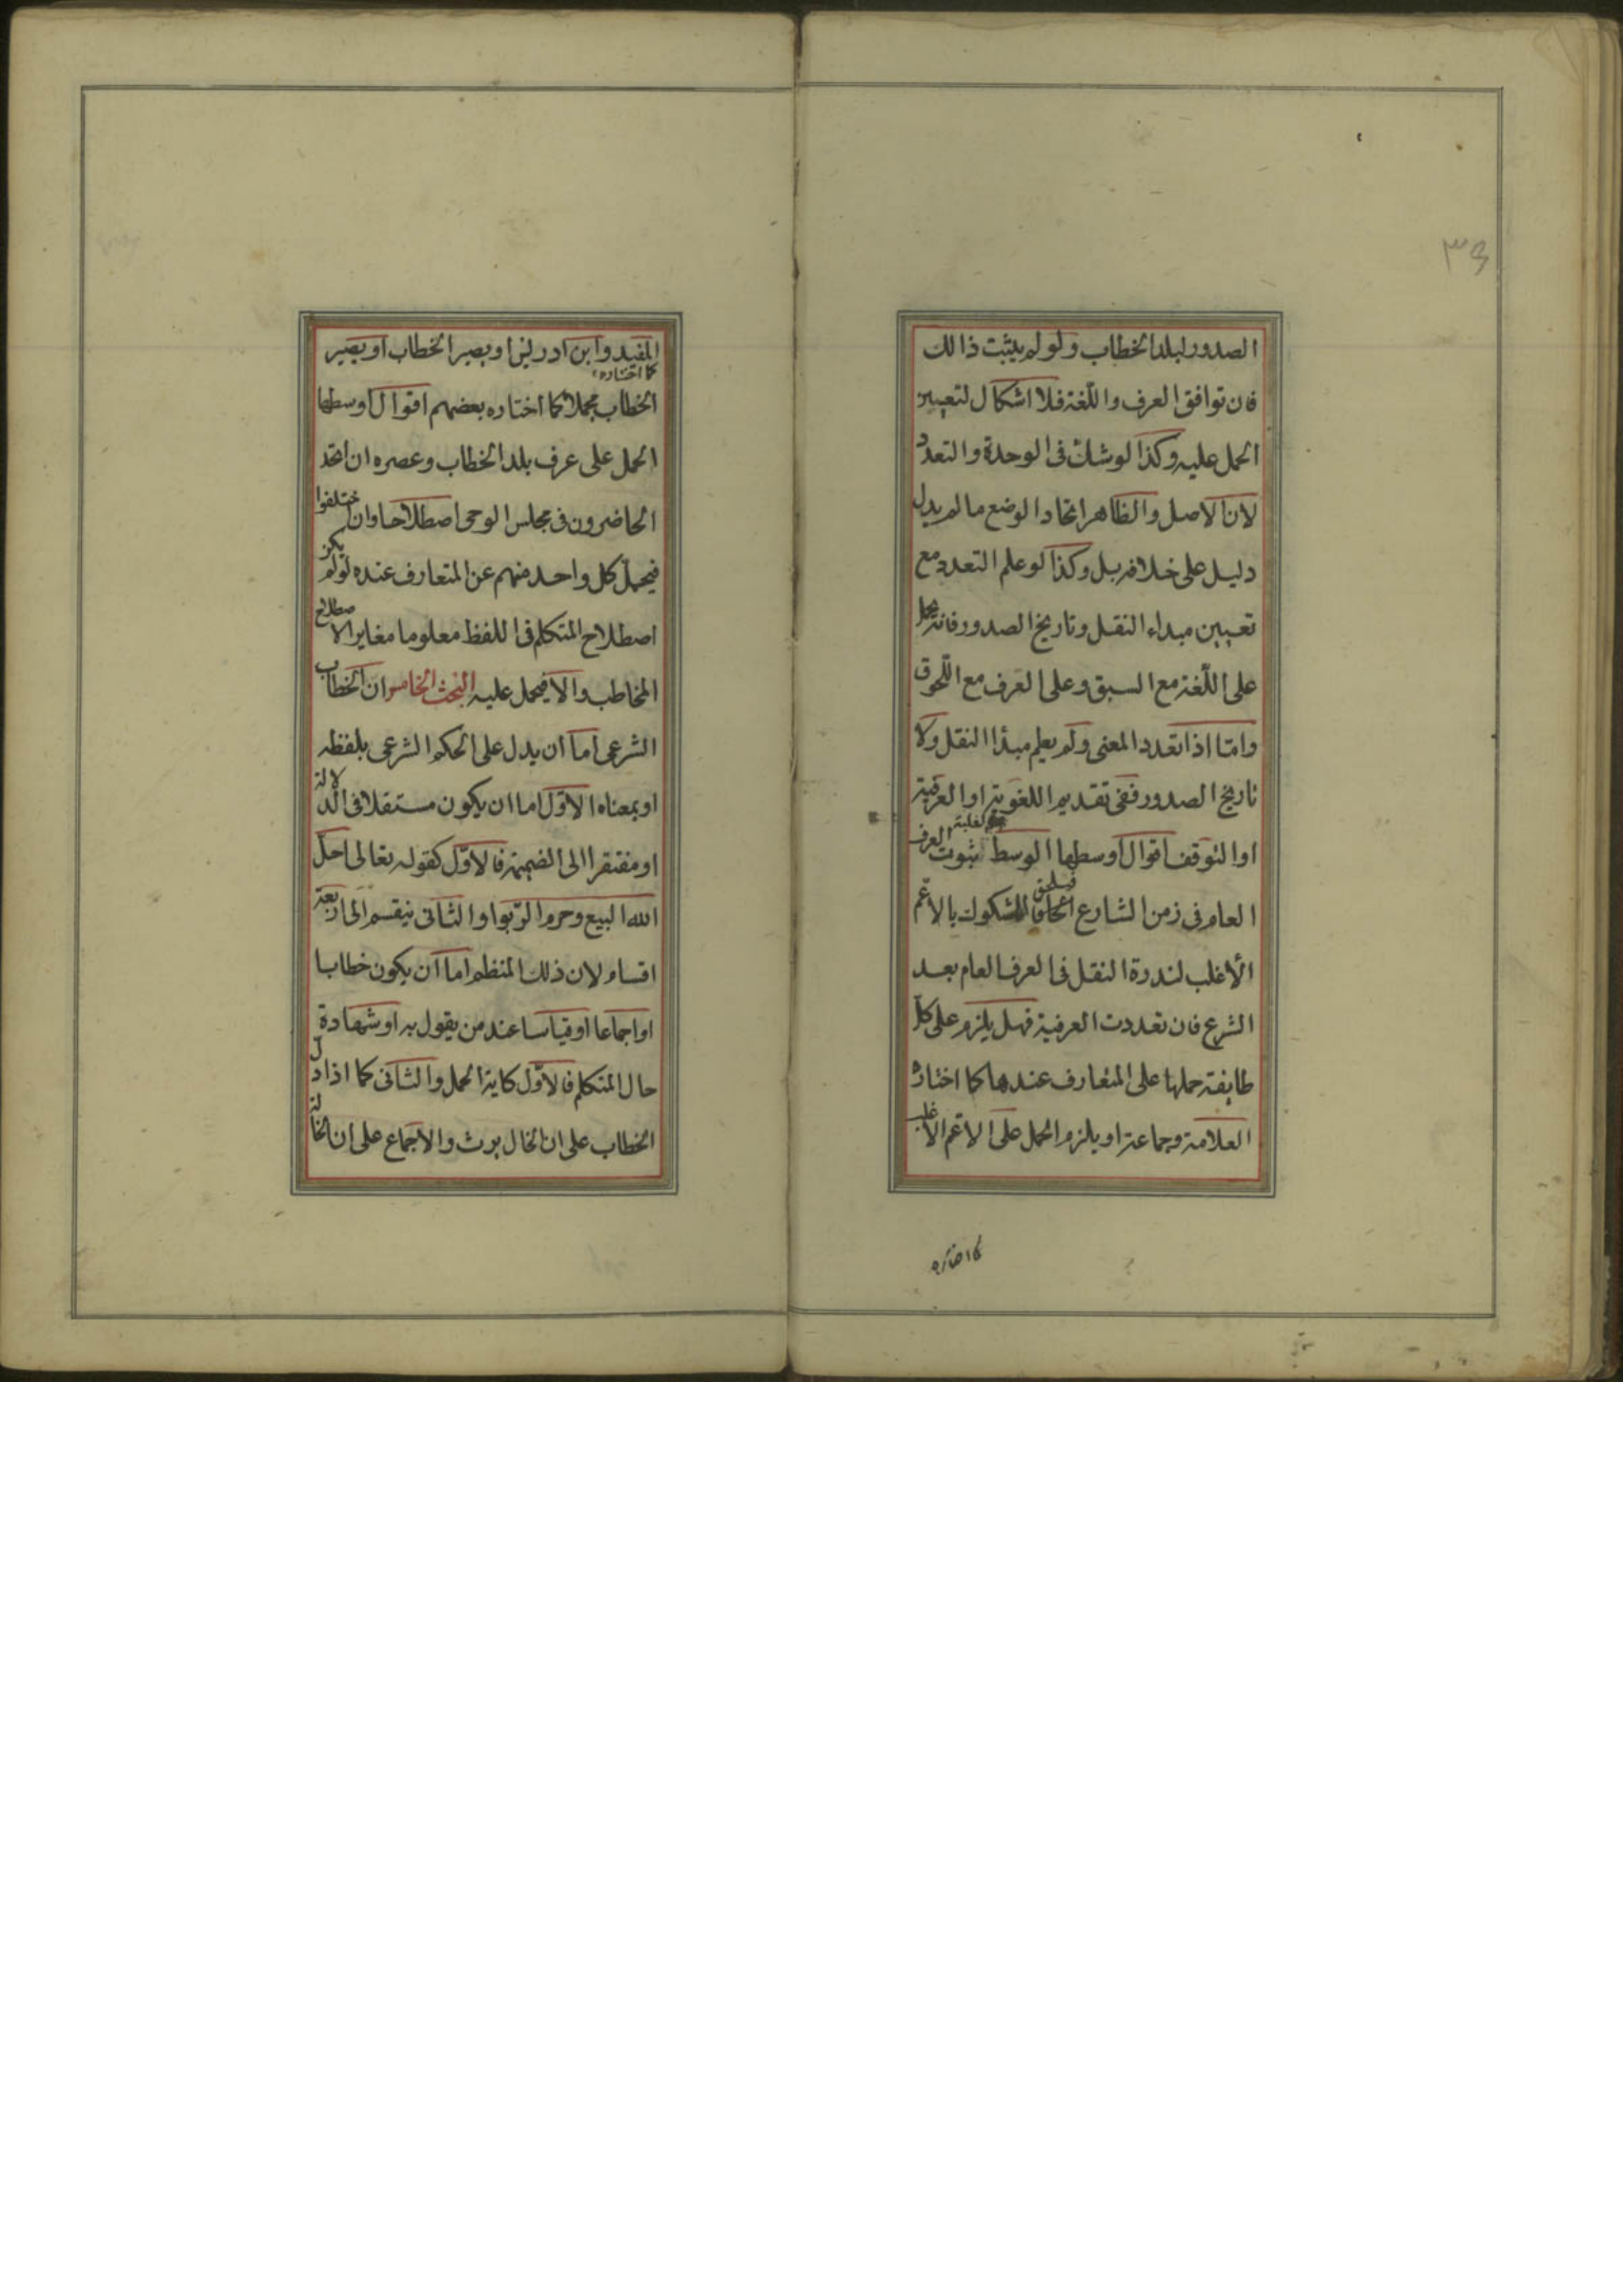 ٣٤
الصدور لبلد الخطاب ولو لم يثبت ذالك
فان توافق العرف واللّغة فلا اشكال لتعيين
الحمل عليه وكذا لو شك فى الوحدة والتعدد
لان الاصل والظاهر اتحاد الوضع ما لم يدل
دليل على خلافه بل وكذا لو علم التعدد مع
تعيين مبداء النقل وتاريخ الصدور فانه يحمل
على اللّغة مع السبق وعلى العرف مع اللّحوق
وامّا اذا تعدد المعنى ولم يعلم مبدا النقل ولا
تاريخ الصدور ففى تقديم اللغوية او العرفية
او التوقف اقوال اوسطها الوسط لغلبة ثبوت العرف
العام فى زمن الشارع فيلحق المشكوك بالاعم
الأغلب لندرة النقل فى العرف العام بعد
الشرع فان تعددت العرفية فهل يلزم على كل
طايفة حملها على المتعارف عندها كما اختاره
العلامة وجماعة او يلزم الحمل على الاعم الاغلب
كما اختاره
المفيد وابن ادريس او يصير الخطاب او يصير
كما اختاره
الخطاب مجملا كما اختاره بعضهم اقوال اوسطها
الحمل على عرف بلد الخطاب وعصره ان اتحد
الحاضرون فى مجلس الوحى اصطلاحا وان اختلفوا
فيحمل كل واحد منهم عن المتعارف عنده لو لم يكن
اصطلاح المتكلم فى اللفظ معلوما مغايرا لاصطلاح
المخاطب والا فيحمل عليه البحث الخامس ان الخطاب
الشرعى اما ان يدل على الحكم الشرعى بلفظه
او بمعناه الاوّل اما ان يكون مستقلا فى الدلالة
او مفتقرا الى الضميمة فالاوّل كقوله تعالى احل
الله البيع وحرم الرّبوا والثانى ينقسم الى اربعة
اقسام لان ذلك المنظم اما ان يكون خطابا
او اجماعا او قياسا عند من يقول به او شهادة
حال المتكلم فالاوّل كاية الحمل والثانى كما اذا دل
الخطاب على ان الخال يرث والاجماع على ان الخالة